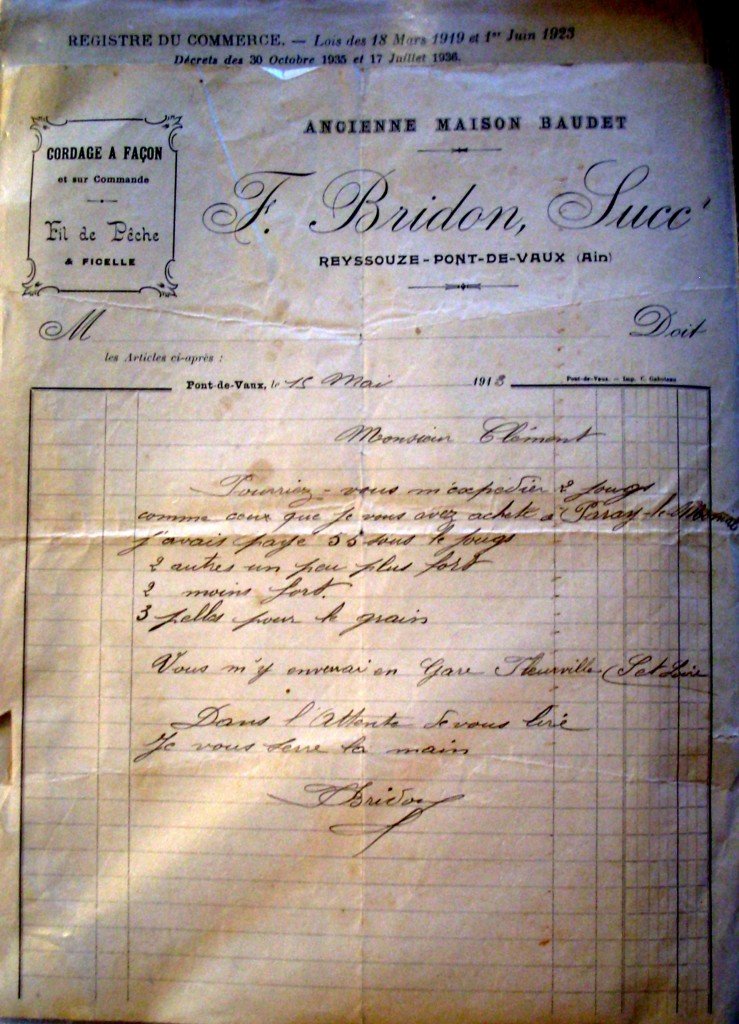 REGISTRE DU COMMERCE. — Lois des 18 Mars 1919 et 1er Juin 1923
Décrets des 30 Octobre 1935 et 17 Juillet 1936.
CORDAGE A FAÇON
et sur Commande
Fil de Pêche
& FICELLE
ANCIENNE MAISON BAUDET
F. Bridon, Succr
REYSSOUZE-PONT-DE-VAUX (Ain)
M
Doit
les Articles ci-après :
Pont-de-Vaux, le 15 Mai 1913
Pont-de-Vaux — Imp. C.
Monsieur Clément
Pourriez-vous m'expedier 2 jougs
comme ceux que je vous avez acheté à Parray-le-Monial
j'avais paye 55 sous le jougs
2 autres un peu plus fort
2 moins fort.
3 pelles pour le grain
Vous m'y enverrai en Gare Fleurville (S et Loire
Dans l'Attente de vous lire
Je vous serre la main
Bridon